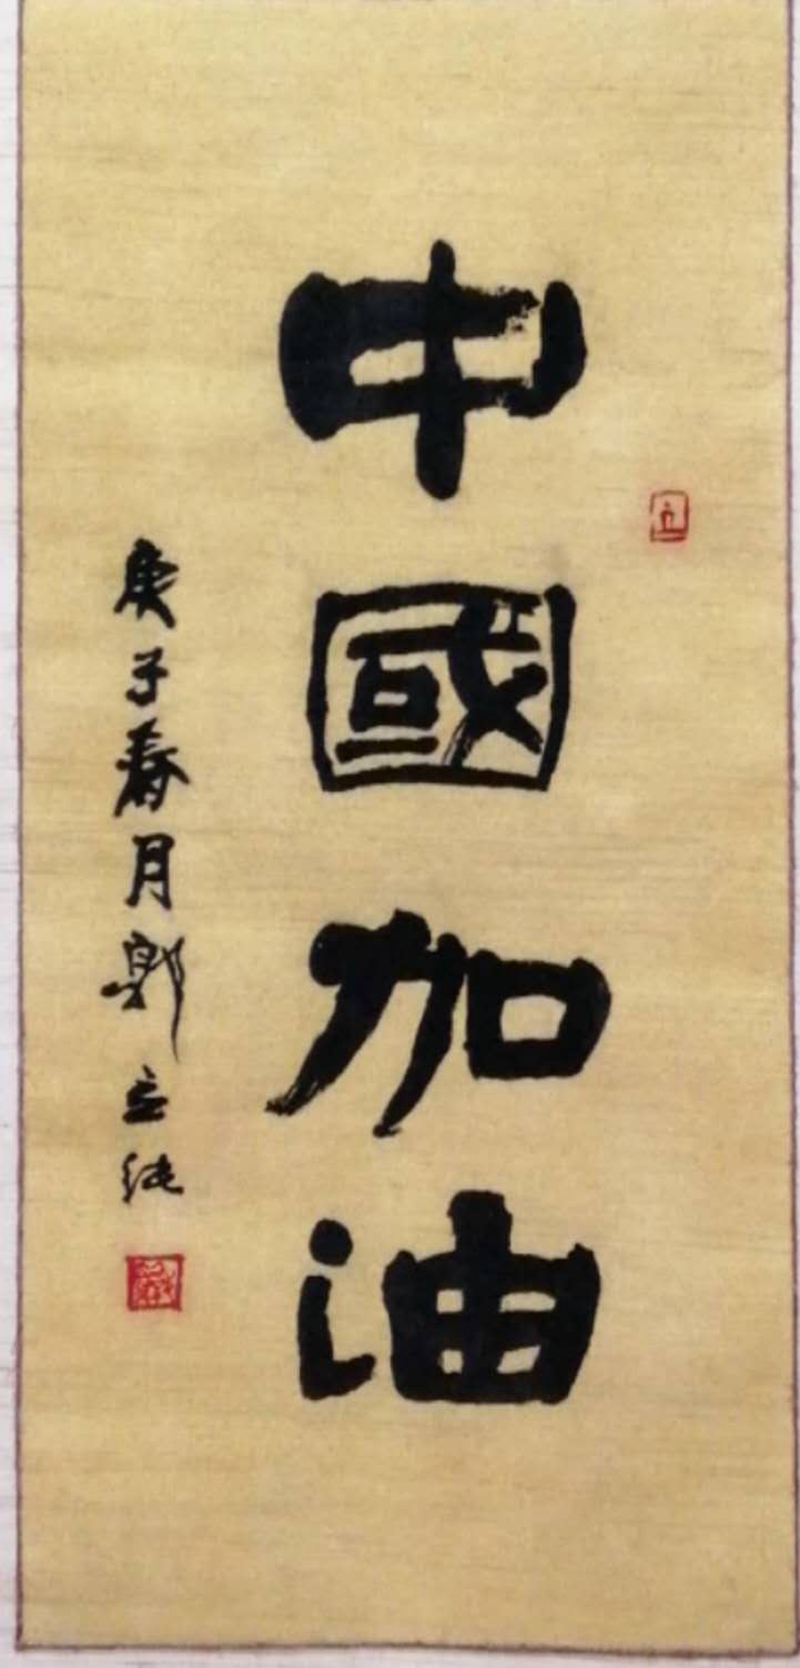 中國加油
庚子春月郭立純